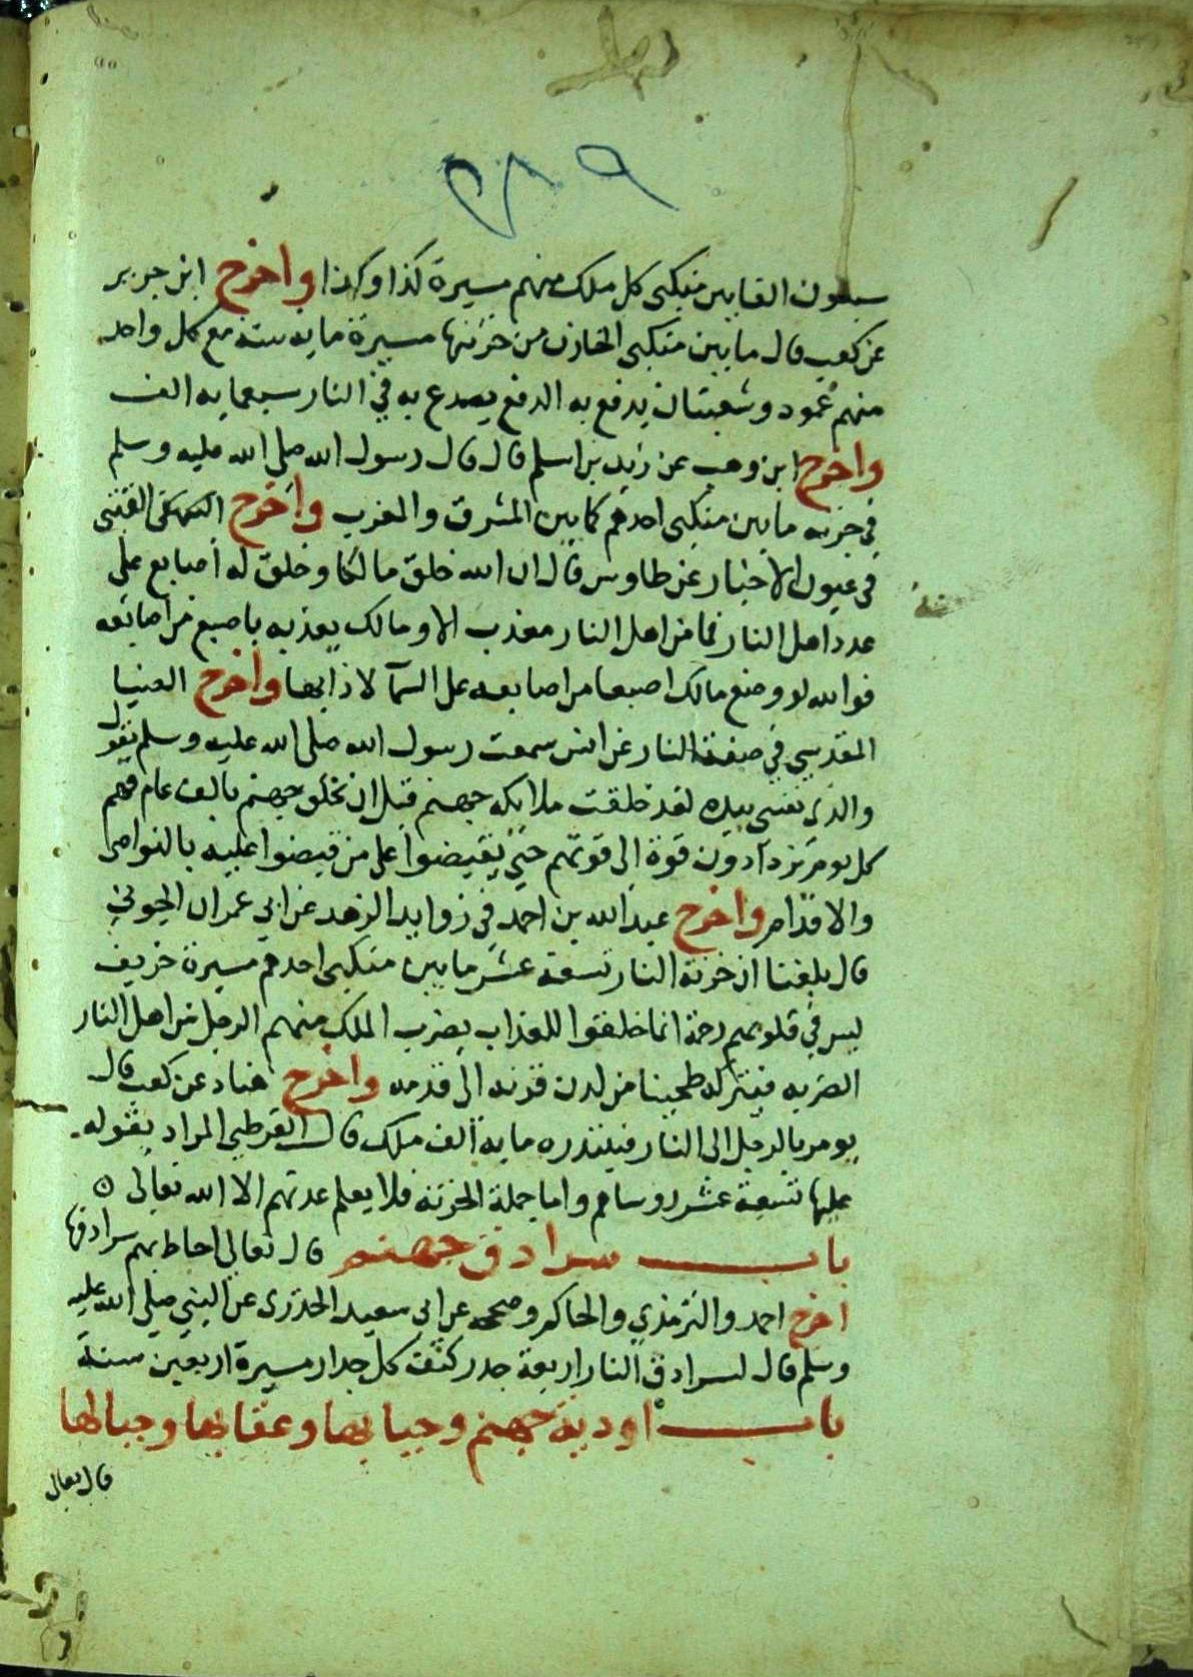 ٢٨٩
سبعون الفا بين منكبي كل ملك منهم مسيرة كذا وكذا واخرج ابن جرير
عن كعب قال ما بين منكبي الخازن من خزنتها مسيرة ماية سنة مع كل واحد
منهم عمود وشعبتان يدفع به الدفع يصدع به في النار سبعماية الف
واخرج ابن وهب عن زيد بن اسلم قال قال رسول الله صلى الله عليه وسلم
في خزنة ما بين منكبي احدهم كما بين المشرق والمغرب واخرج القتبي
في عيون الاخبار عن طاوس قال ان الله خلق مالكا وخلق له اصابع على
عدد اهل النار فما من اهل النار معذب الا ومالك يعذبه باصبع من اصابعه
فوالله لو وضع مالك اصبعا من اصابعه على السمآ لاذابها واخرج الضيا
المقدسي في صفة النار عن انس سمعت رسول الله صلى الله عليه وسلم يقول
والذي نفسي بيده لقد خلقت ملايكة جهنم قبل ان تخلق جهنم بالف عام فهم
كل يوم يزدادون قوة الى قوتهم حتى يقبضوا على من قبضوا عليه بالنواصي
والاقدام واخرج عبد الله بن احمد في زوايد الزهد عن ابي عمران الجوني
قال بلغنا ان خزنة النار تسعة عشر ما بين منكبي احدهم مسيرة خريف
ليس في قلوبهم رحمة انما خلقوا للعذاب يضرب الملك منهم الرجل من اهل النار
الضربة فيتركه طحينا من لدن قرنه الى قدمه واخرج هناد عن كعب قال
يومر بالرجل الى النار فيبتدره ماية الف ملك قال القرطبي المراد بقوله
عليها تسعة عشر روساهم واما جملة الخزنة فلا يعلم عدتهم الا الله تعالى ه
باب سرادق جهنم قال تعالى احاط بهم سرادقها
اخرج احمد والترمذي والحاكم وصححه عن ابي سعيد الخدري عن النبي صلى الله عليه
وسلم قال لسرادق النار اربعة جدر كثف كل جدار مسيرة اربعين سنة
باب اودية جهنم وجبابها وعقابها وجبالها
قال تعالى